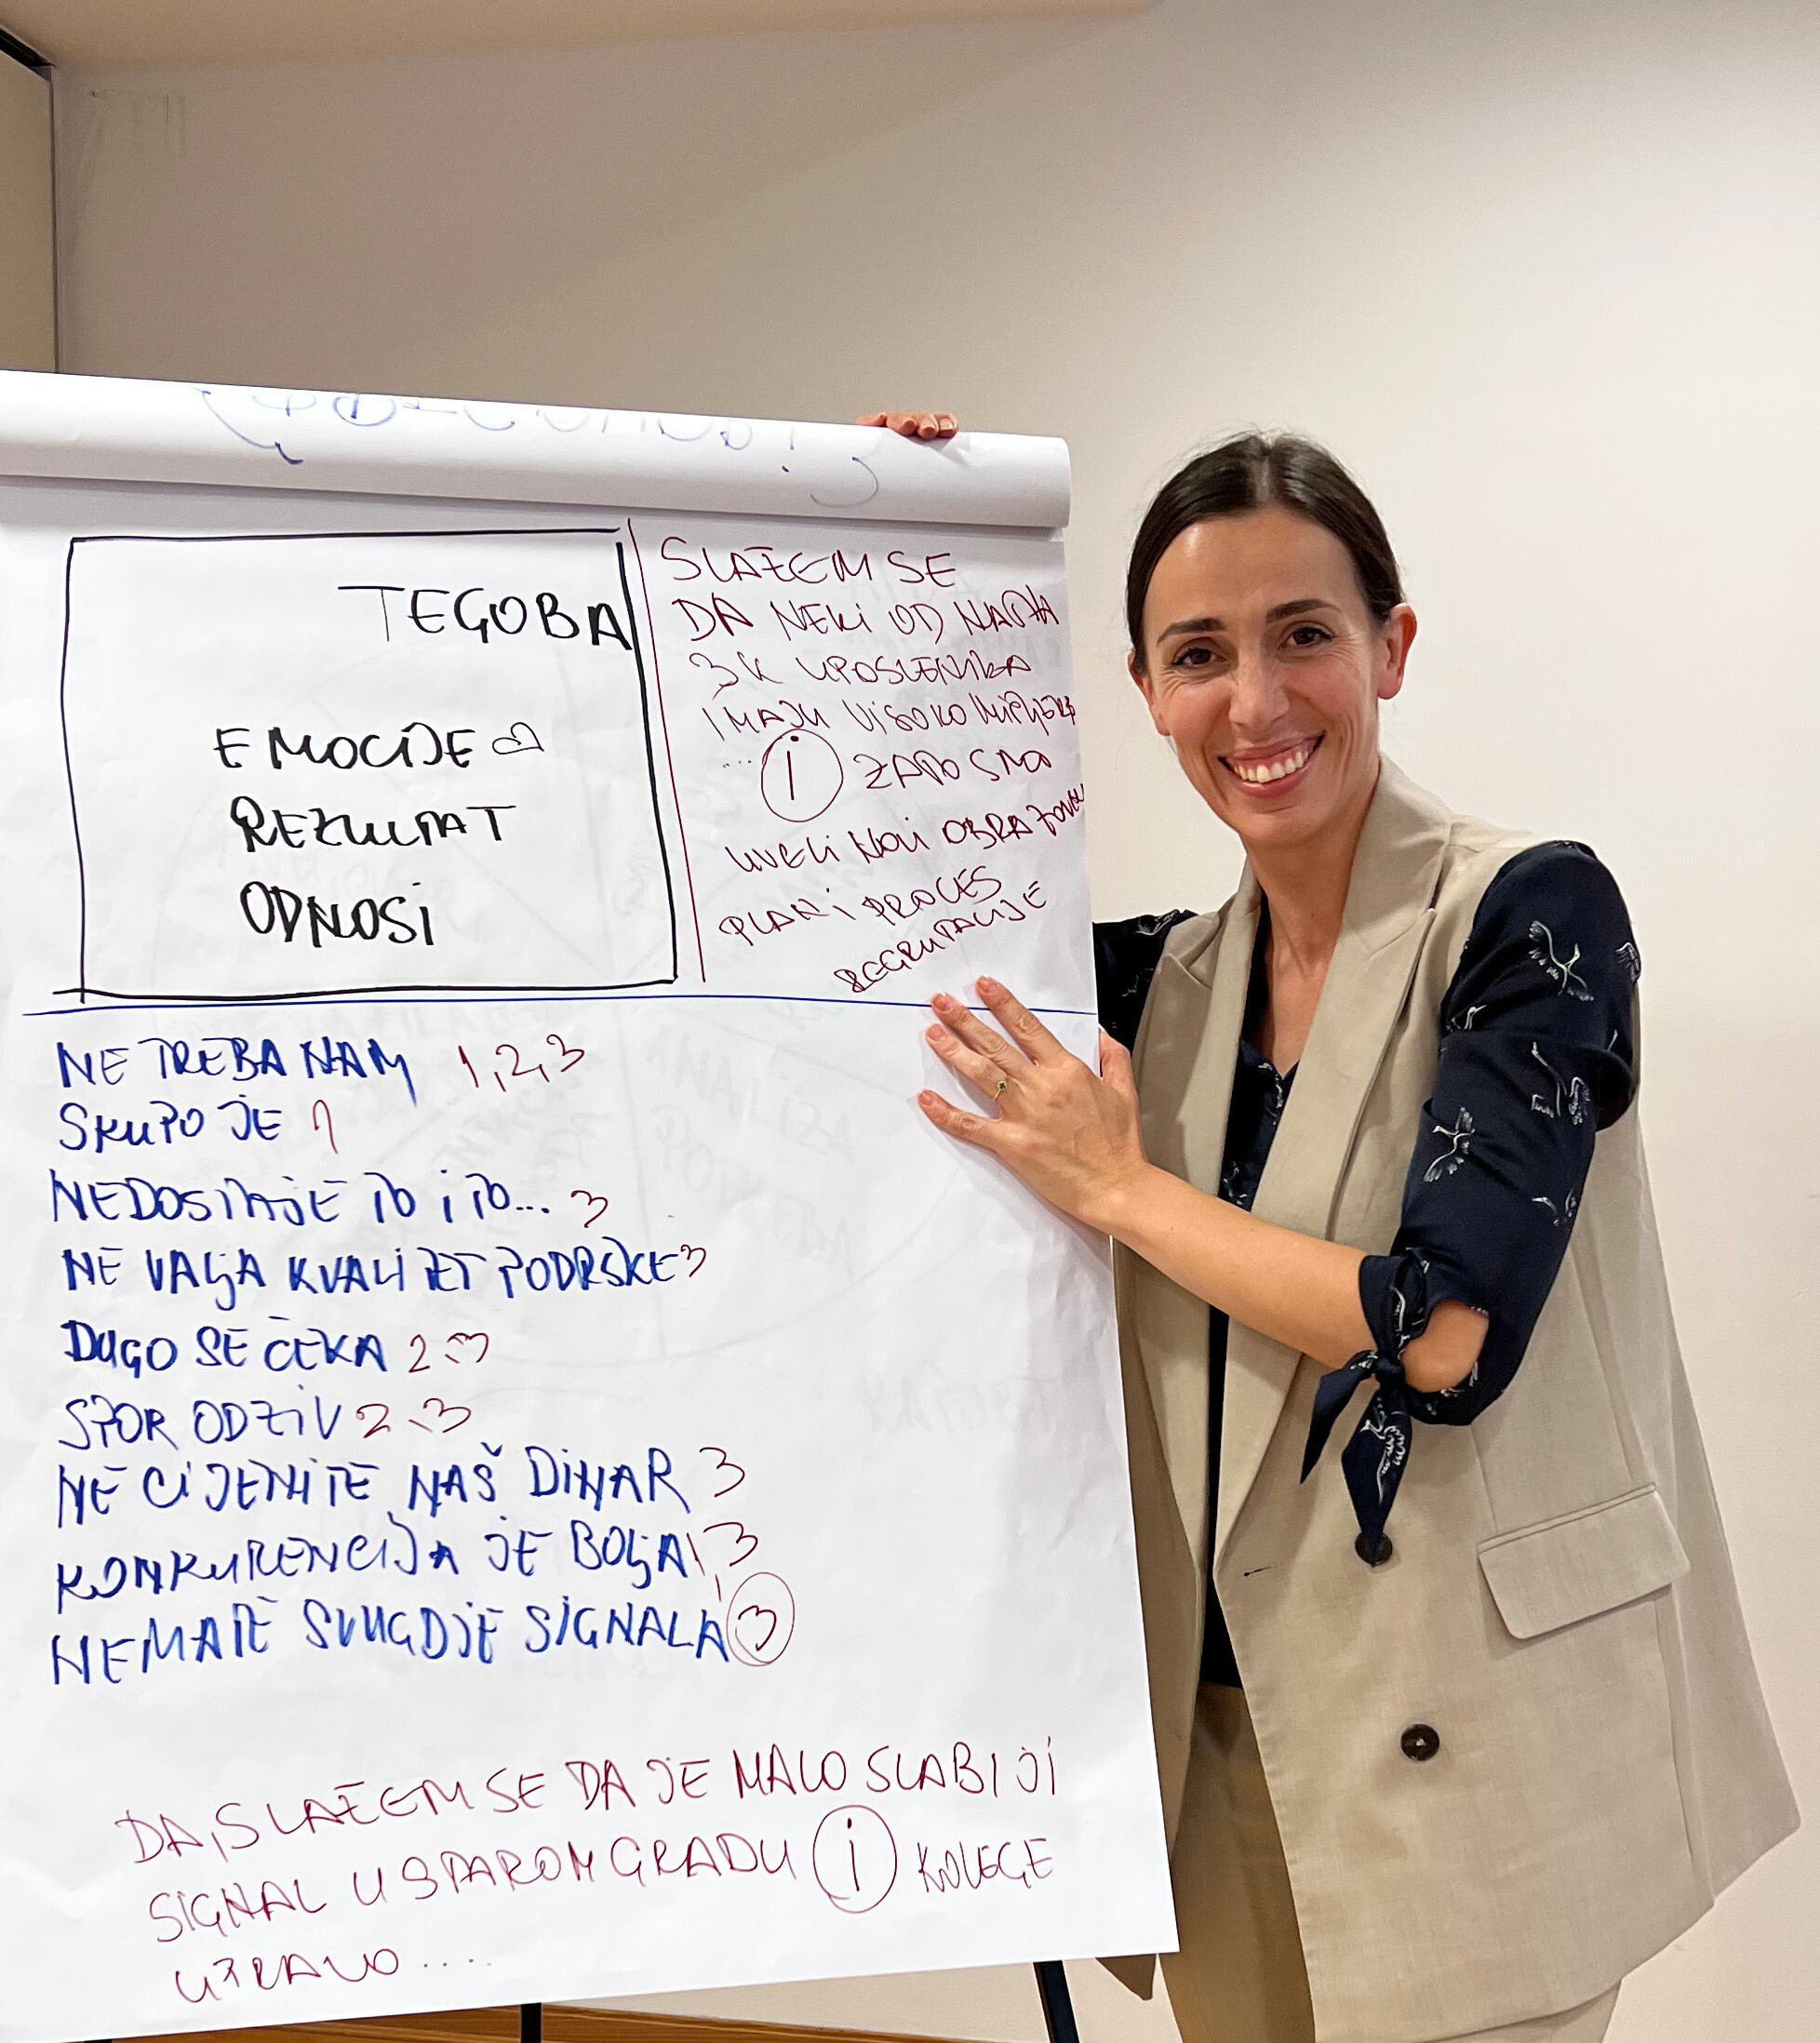 TEGOBA
EMOCIJE
REZULTAT
ODNOSI
SLAŽEM SE
DA NEKI OD NAŠIH
3K UPOSLENIKA
IMAJU VISOKO
.... i ZATO SMO
UVELI NOVI OBRAZOVNI
PLAN i PROCES
REGRUTACIJE
NE TREBA NAM 1,2,3
SKUPO JE 1
NEDOSTAJE TO i TO... 3
NE VALJA KVALITET PODRŠKE 3
DUGO SE ČEKA 2.3
SPOR ODZIV 2.3
NE CIJENITE NAŠ DINAR 3
KONKURENCIJA JE BOLJA 1,3
NEMATE SVUGDJE SIGNALA 3
DA, SLAŽEM SE DA JE MALO SLABIJI
SIGNAL U STAROM GRADU i KOLEGE
UPRAVO ....